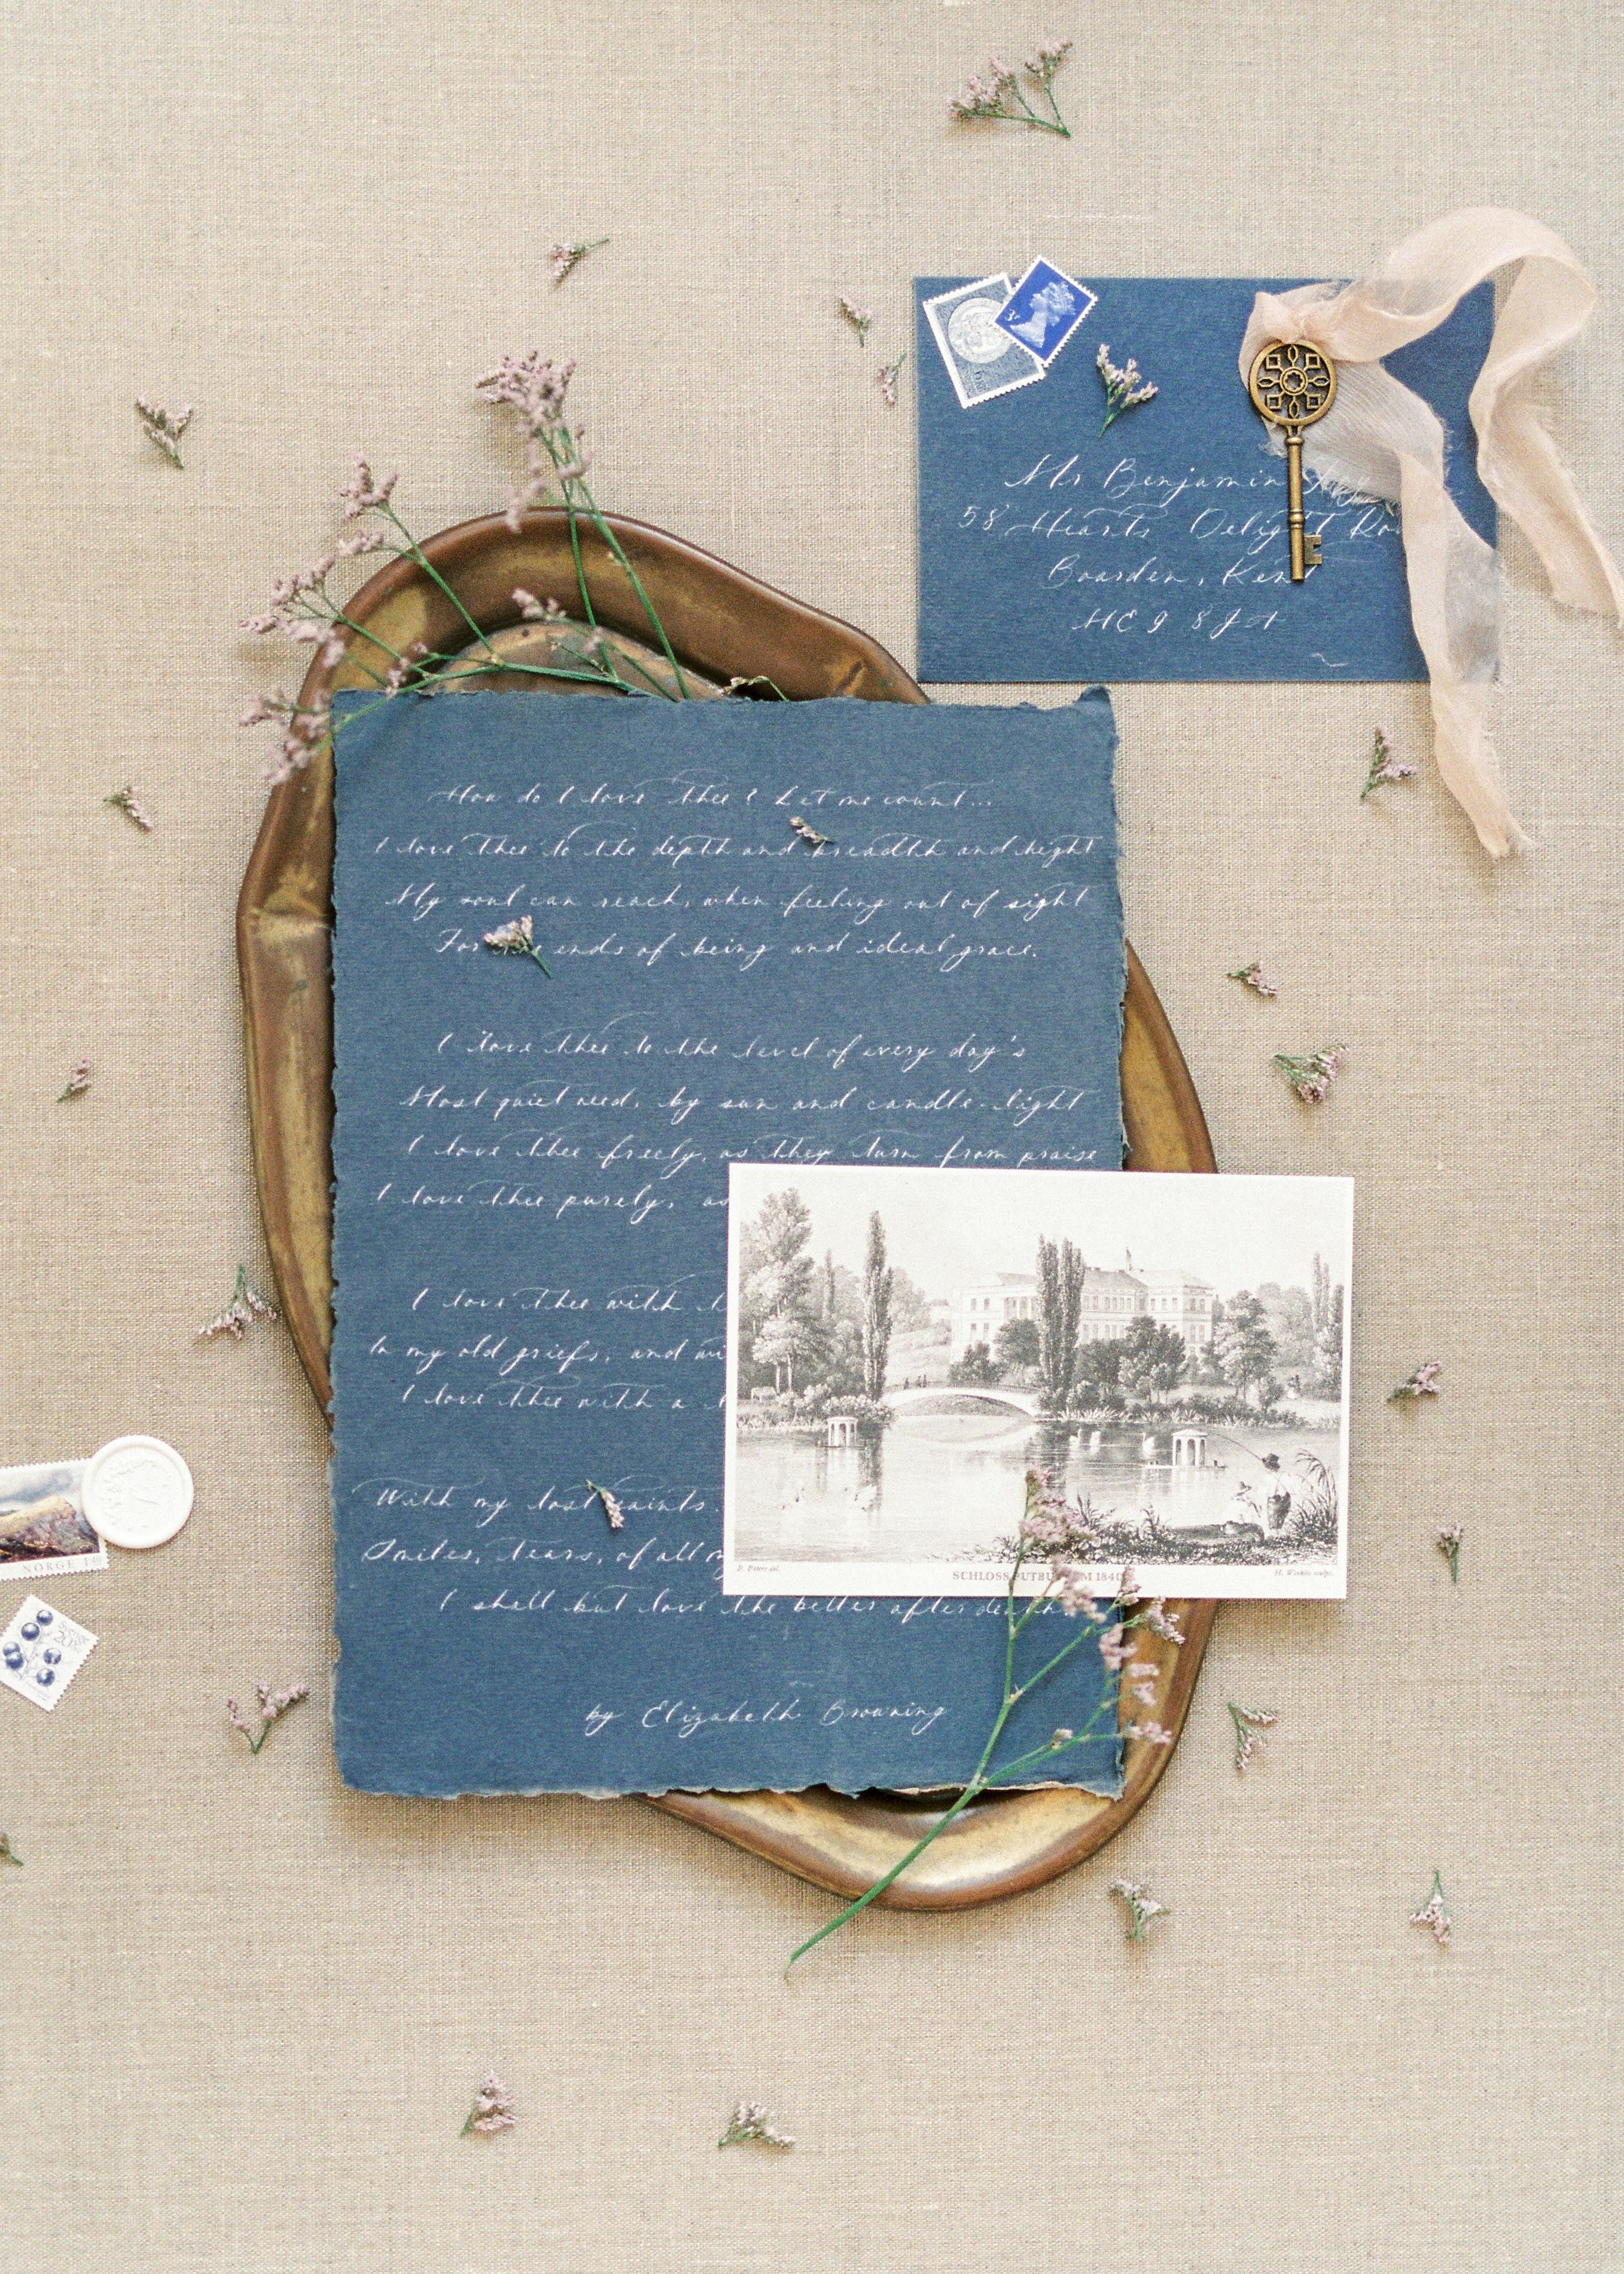 3P
Mr Benjamin
58 Hearts Delight
Boarden, Kent
ME9 8JA
How do I love thee? Let me count...
I love thee to the depth and breadth and height
My soul can reach, when feeling out of sight
For the ends of being and ideal grace.
I love thee to the level of every day's
Most quiet need, by sun and candle-light
I love thee freely, as they turn from praise
I love thee purely, as
I love thee with
In my old griefs, and
I love thee with a
With my lost saints.
Smiles, tears, of all
I shall but love the better after death.
by Elizabeth Browning
SCHLOSS PUTBUS UM 1840
NORGE 140
SVERIGE
20